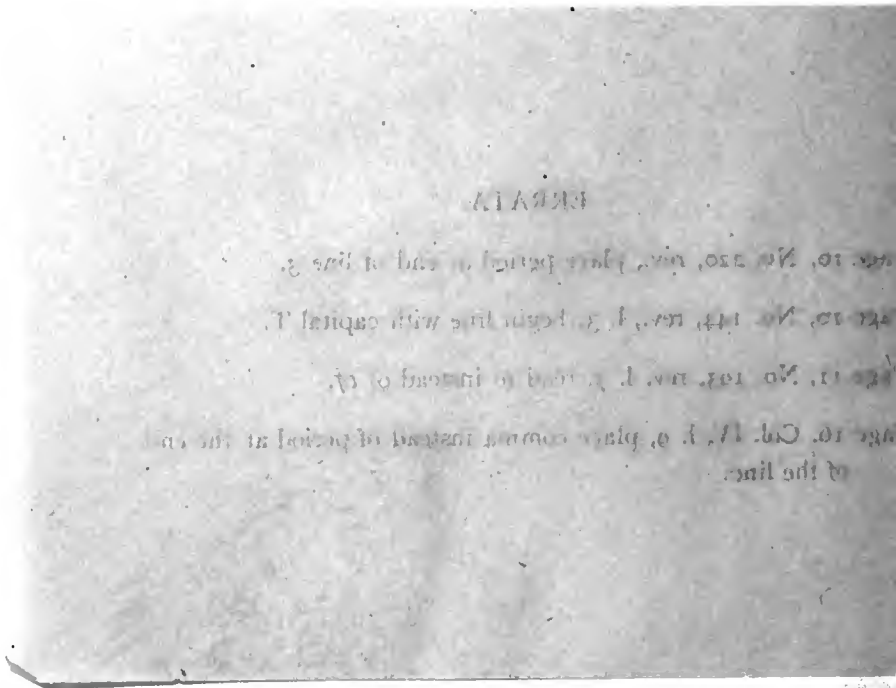 ERRATA
10, No. 220, rev., place period at end of line 3.
10, No. 143, rev., l. 3, begin line with capital T.
11, No. 193, rev. l. read to instead of of.
16, Col. IV, l. 9, place comma instead of period at the end
of the line.